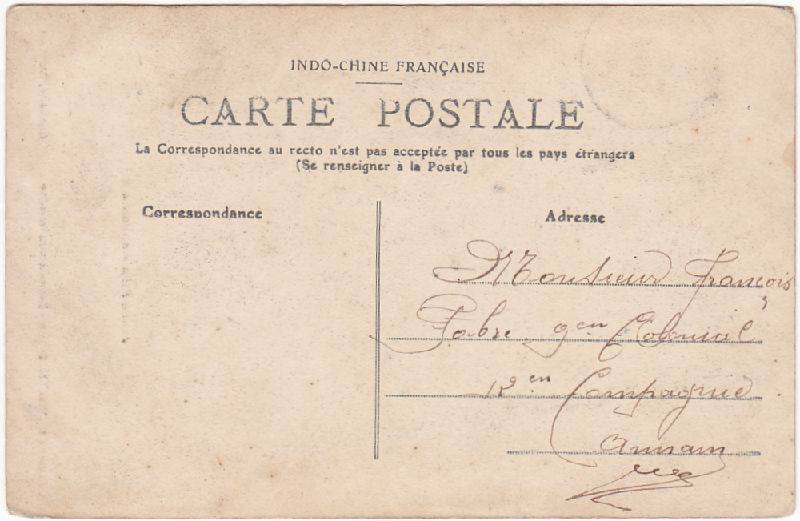 INDO-CHINE FRANÇAISE
CARTE POSTALE
La Correspondance au recto n'est pas acceptée par tous les pays étrangers
(Se renseigner à la Poste)
Correspondance
Adresse
Monsieur françois
Fabre 9en Colonial
12en Compagnie
Annam